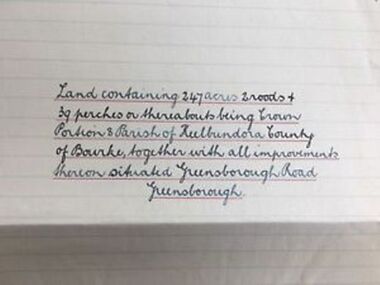 Land containing 247 acres 2 roods &
39 perches or thereabouts being Crown
Portion 8 Parish of Keelbundora County
of Bourke, together with all improvements
thereon situated Greensborough Road
Greensborough.